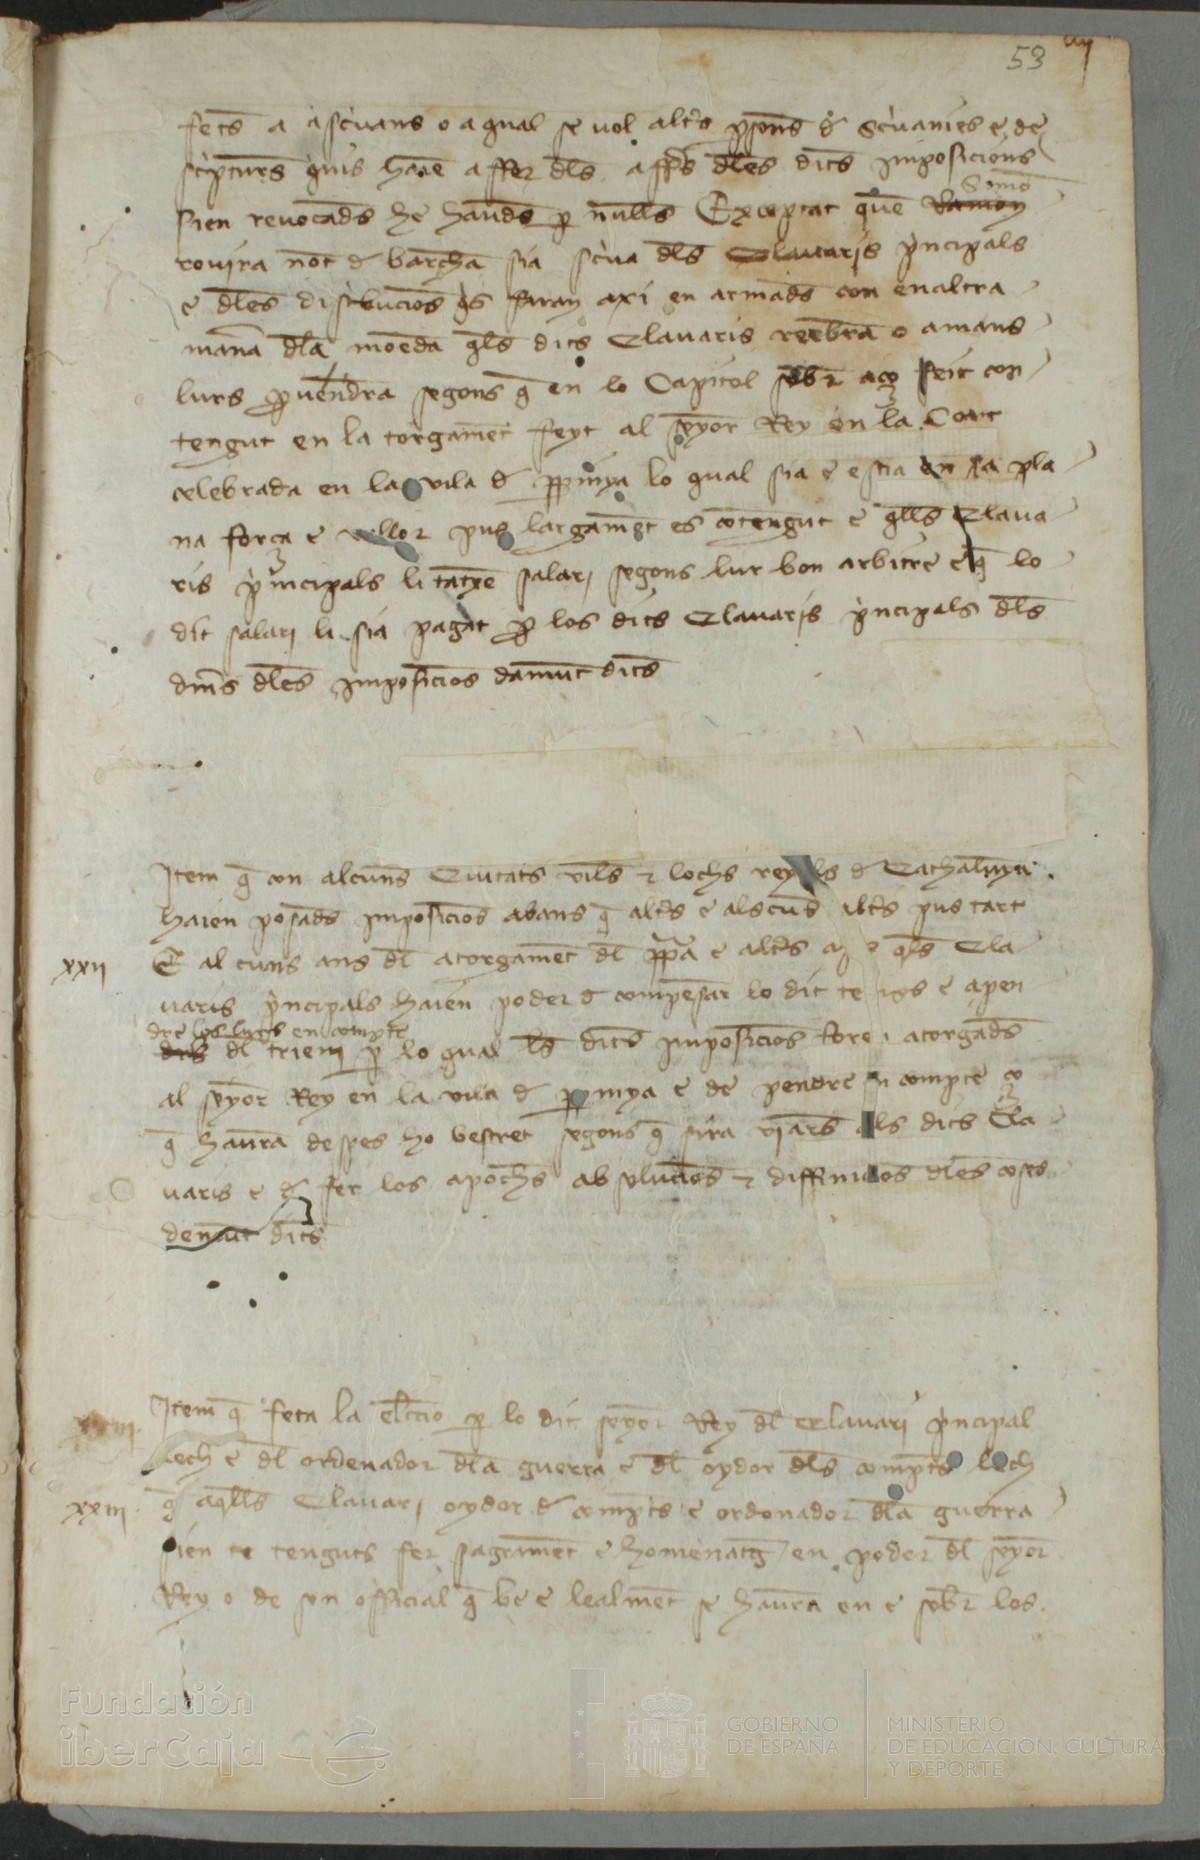 53
fets a ascrivans o a qual se vol altrs psons d scrivanies e de
scripturs quis haie affer dls affrs dles dits imposicions
sien revocads he hauds p nulls Exceptat quen Ramon Simo
rovira not d barchna sia scriva dls Clavaris principals
e dles distribucions qs faran axi en armads con en altra
mana dla moneda qls dits Clavaris reebra o a mans
lurs pvendra segons q en lo Capitol sobr aço feit con
tengut en la torgament feyt al senyor Rey en la Cort
celebrada en la vila d ppinya lo qual sia e estia en sa pla
na força e vallor pus largament es contengut e qlls Clava
ris principals li tatxe salari segons lur bon arbitre e q lo
dit salari li sia pagat p los dits Clavaris principals dls
diners dles imposicios damunt dits
Item q con alcuns Ciutats vils e lochs reyals d Cathalunya
haien posads imposicios abans q altrs e alscuns altrs pus tart
xxii
E alcuns ans dl atorgament dl ppia e altrs qls Cla
varis principals haien poder d compensar lo dit temps e a pen
dre los lurs en compte
dels dl trieni p lo qual ls dits imposicios foren atorgads
al senyor Rey en la vila d ppinya e de pendre en compte ço
q haura despes ho bestret segons q sira viars als dits Cla
varis e d fer los apochs absolucios e diffinicios dles coses
denant dits
Item q feta la eleccio p lo dit senyor Rey dl Clavari principal
lech e dl ordenador dla guerra e dl oydor dls compts lech
xxiii
q aqlls Clavari oydor d compts e ordonador dla guerra
sien tenguts fer sagrament e homenatg en poder dl senyor
Rey o de son official q be e lealment se haura en e sobr los
Fundación
iberCaja
GOBIERNO
DE ESPAÑA
MINISTERIO
DE EDUCACIÓN, CULTURA
Y DEPORTE